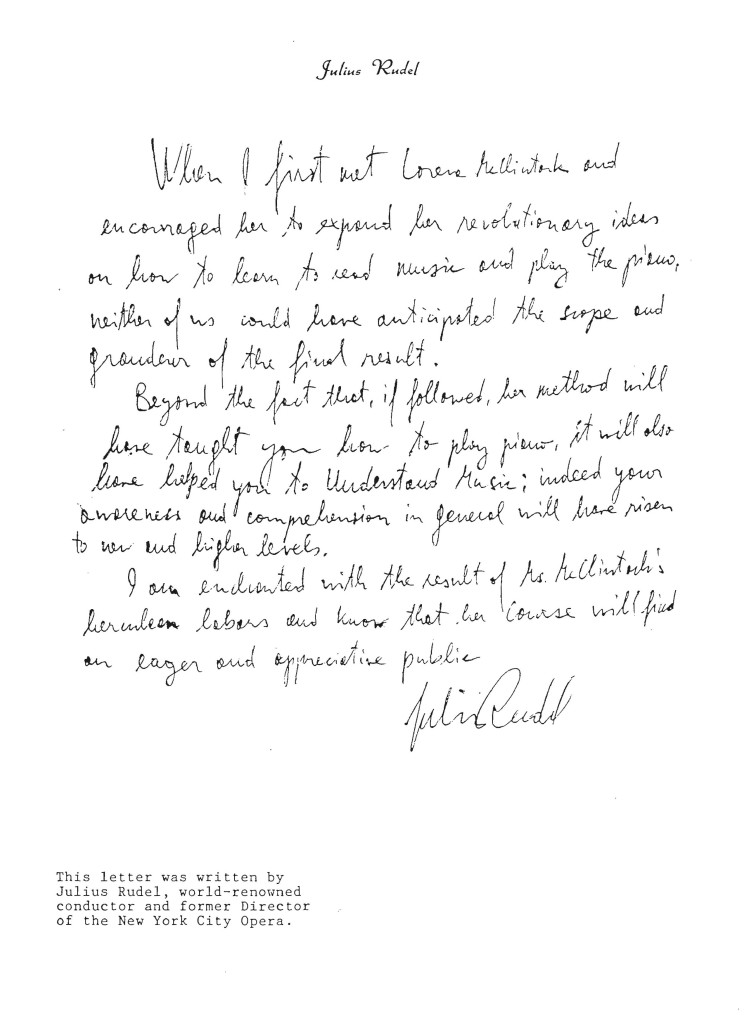 Julius Rudel
When I first met Lorene McClintock and
encouraged her to expand her revolutionary ideas
on how to learn to read music and play the piano,
neither of us could have anticipated the scope and
grandeur of the final result.
Beyond the fact that, if followed, her method will
have taught you how to play piano, it will also
have helped you to Understand Music; indeed your
awareness and comprehension in general will have risen
to new and higher levels.
I am enchanted with the result of Ms. McClintock's
herculean labors and know that her Course will find
an eager and appreciative public
Julius Rudel
This letter was written by
Julius Rudel, world-renowned
conductor and former Director
of the New York City Opera.